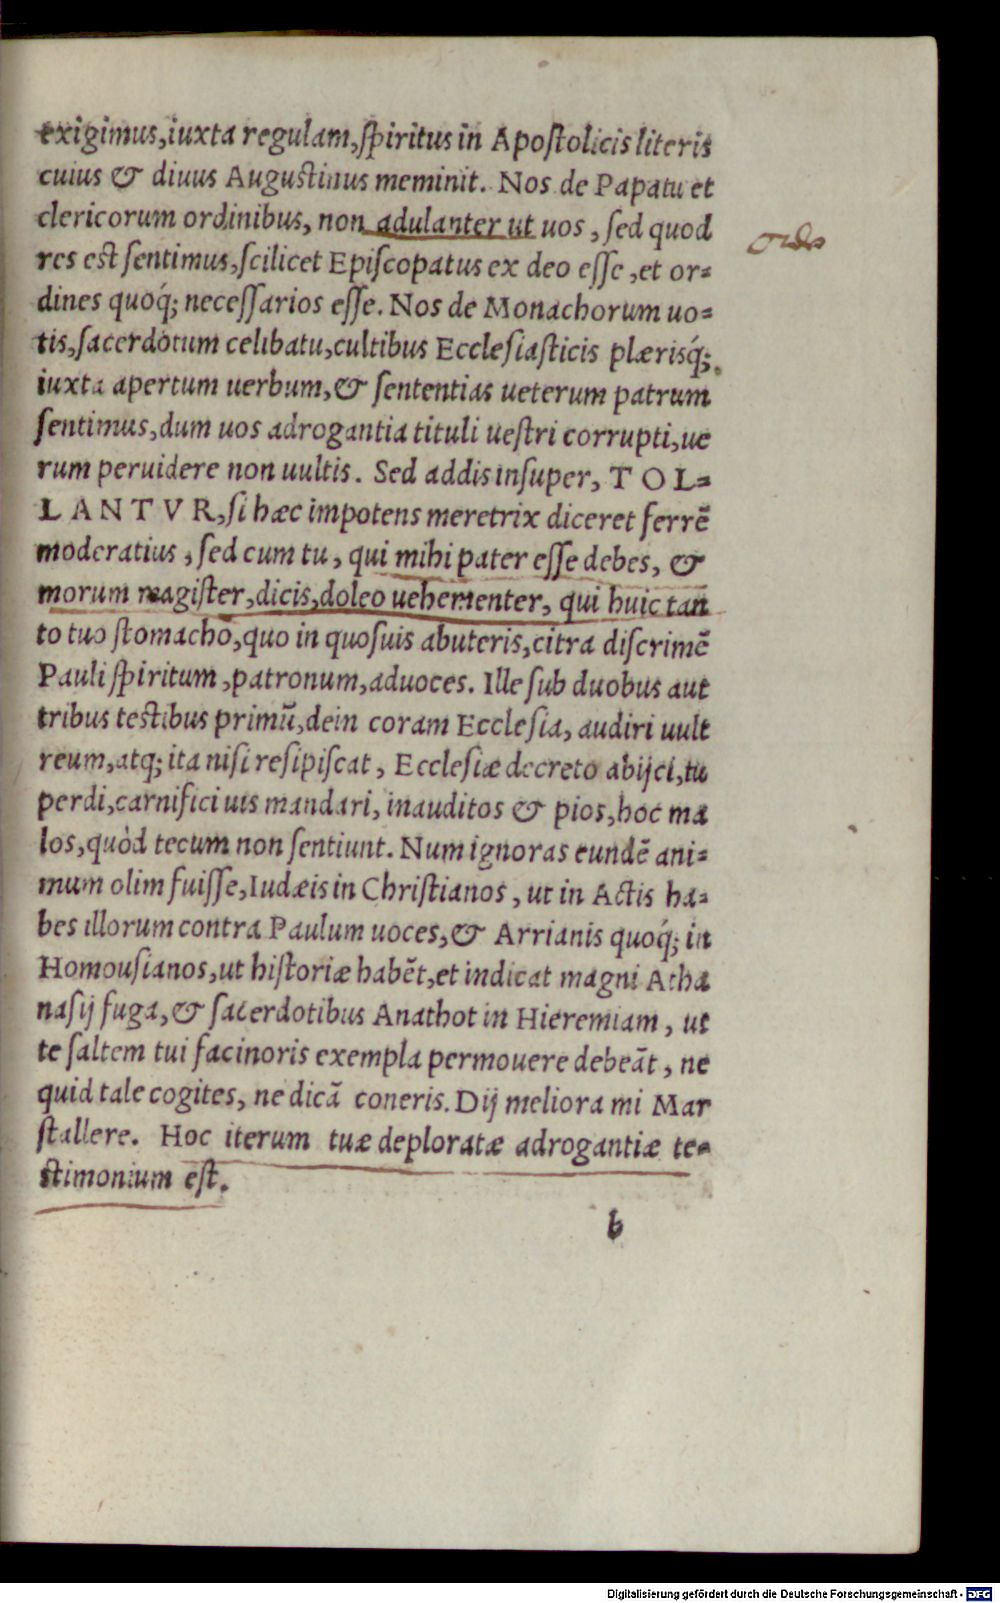 exigimus,iuxta regulam,ſpiritus in Apoſtolicis literis
cuius & diuus Auguſtinus meminit. Nos de Papatu et
clericorum ordinibus, non adulanter ut uos , ſed quod
res eſt ſentimus,ſcilicet Epiſcopatus ex deo eſſe ,et or⸗
dines quoq́; neceſſarios eſſe. Nos de Monachorum uo⸗
tis,ſacerdotum celibatu,cultibus Eccleſiaſticis plæriſq́;
iuxta apertum uerbum,& ſententias ueterum patrum
ſentimus,dum uos adrogantia tituli ueſtri corrupti,ue
rum peruidere non uultis. Sed addis inſuper, T O L⸗
L A N T V R,ſi hæc impotens meretrix diceret ferrẽ
moderatius , ſed cum tu , qui mihi pater eſſe debes, &
morum magiſter,dicis,doleo uehementer, qui huic tan
to tuo ſtomacho,quo in quoſuis abuteris,citra diſcrimẽ
Pauli ſpiritum ,patronum,aduoces. Ille ſub duobus aut
tribus teſtibus primũ,dein coram Eccleſia, audiri uult
reum,atq; ita niſi reſipiſcat , Eccleſiæ decreto abijci,tu
perdi,carnifici uis mandari, inauditos & pios,hoc ma
los,quòd tecum non ſentiunt. Num ignoras eundẽ ani⸗
mum olim fuiſſe,Iudæis in Chriſtianos , ut in Actis ha⸗
bes illorum contra Paulum uoces,& Arrianis quoq́; in
Homouſianos,ut hiſtoriæ habẽt,et indicat magni Atha
naſij fuga,& ſacerdotibus Anathot in Hieremiam , ut
te ſaltem tui facinoris exempla permouere debeãt , ne
quid tale cogites, ne dicã coneris. Dij meliora mi Mar
ſtallere. Hoc iterum tuæ deploratæ adrogantiæ te⸗
ſtimonium eſt.
b
Ordo
Digitalisierung gefördert durch die Deutsche Forschungsgemeinschaft - DFG